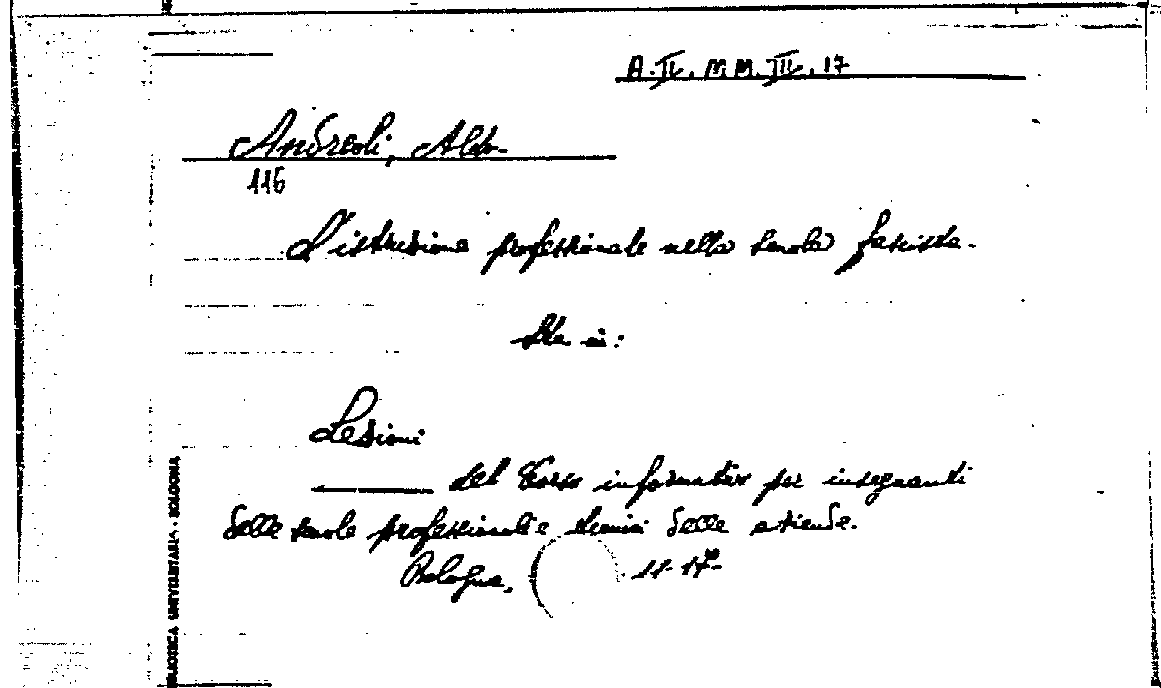 A. IV. MM. III. 17
Andreoli, Aldo
116
L'istruzione professionale nella scuola fascista.
Sta in:
Lezioni
del Corso informativo per insegnanti
delle scuole professionali e tecnici delle aziende.
Bologna, 11-17
BIBLIOTECA UNIVERSITARIA - BOLOGNA